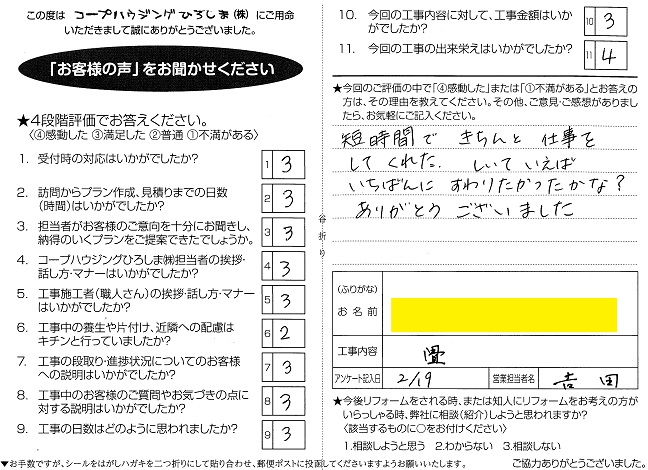 この度は コープハウジングひろしま(株) にご用命
いただきまして誠にありがとうございました。
「お客様の声」をお聞かせください
★4段階評価でお答えください。
〈④感動した ③満足した ②普通 ①不満がある〉
1. 受付時の対応はいかがでしたか?
1 3
2. 訪問からプラン作成、見積りまでの日数
(時間)はいかがでしたか?
2 3
3. 担当者がお客様のご意向を十分にお聞きし、
納得のいくプランをご提案できたでしょうか。
3 3
4. コープハウジングひろしま㈱担当者の挨拶・
話し方・マナーはいかがでしたか?
4 3
5. 工事施工者(職人さん)の挨拶・話し方・マナー
はいかがでしたか?
5 3
6. 工事中の養生や片付け、近隣への配慮は
キチンと行っていましたか?
6 2
7. 工事の段取り・進捗状況についてのお客様
への説明はいかがでしたか?
7 3
8. 工事中のお客様のご質問やお気づきの点に
対する説明はいかがでしたか?
8 3
9. 工事の日数はどのように思われましたか?
9 3
谷折り
10. 今回の工事内容に対して、工事金額はいか
がでしたか?
10 3
11. 今回の工事の出来栄えはいかがでしたか?
11 4
★今回のご評価の中で「④感動した」または「①不満がある」とお答え
の方は、その理由を教えてください。その他、ご意見・ご感想がありまし
たら、お気軽にご記入ください。
短時間で きちんと 仕事を
してくれた。 しいて いえば
いちばんに すわりたかったかな?
ありがとう ございました
(ふりがな)
お名前
工事内容 畳
アンケート記入日 2/19 営業担当者名 吉田
★今後リフォームをされる時、または知人にリフォームをお考えの方が
いらっしゃる時、弊社に相談(紹介)しようと思われますか?
〈該当するものに○をお付けください〉
1.相談しようと思う 2.わからない 3.相談しない
▼お手数ですが、シールをはがしハガキを二つ折りにして貼り合わせ、郵便ポストに投函してくださいますようお願いいたします。 ご協力ありがとうございました。